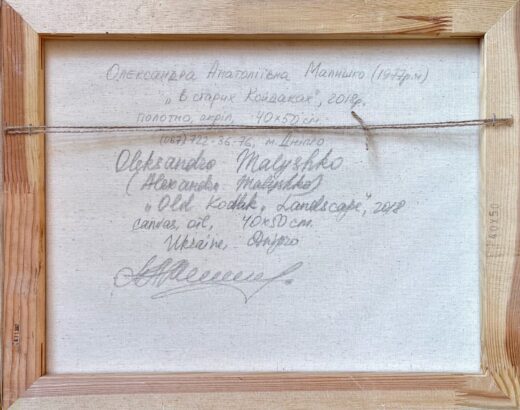 Олександра Анатоліївна Малишко (1977р.н)
„В старих Койдаках", 2018р.
полотно, акріл, 40×50 см.
(067) 722-36-76, м. Дніпро
Oleksandra Malyshko
(Alexandra Malyshko)
„Old Kodak, Landscape", 2018
canvas, oil, 40×50 cm.
Ukraine, Dnipro
40X50